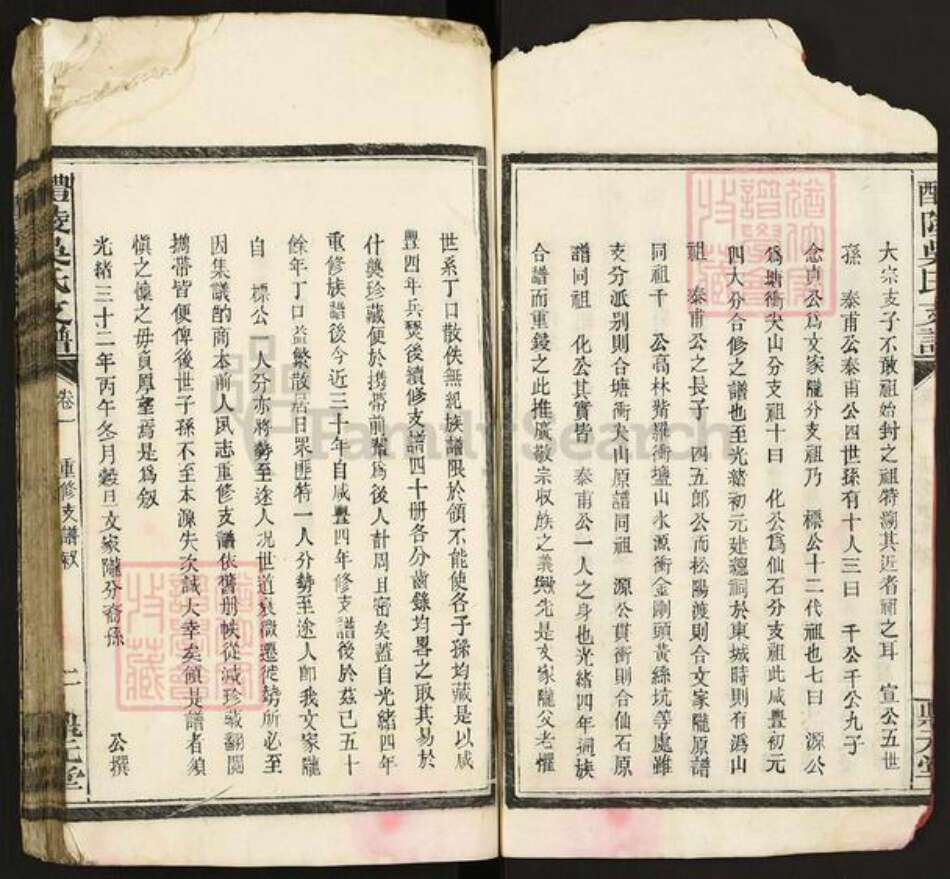 大宗支子不敢祖始封之祖特溯其近者禰之耳 宣公五世
孫 泰甫公泰甫公四世孫有十人三曰 千公千公九子
念貞公爲文家隴分支祖乃 標公十二代祖也七曰 源公
爲塘衝尖山分支祖十曰 化公爲仙石分支祖此咸豐初元
四大分合修之譜也至光緒初元建總祠於東城時則有潙山
祖 泰甫公之長子 四五郎公而松陽渡則合文家隴原譜
同祖千 公高林嘴羅衝壇山水源衝金剛頭黃絲坑等處雖
支分派别則合塘衝尖山原譜同祖 源公貫衝則合仙石原
譜同祖 化公其實皆 泰甫公一人之身也光緒四年祠族
合譜而重鋟之此推廣敬宗収族之義歟先是文家隴父老懼
世系丁口散佚無紀族譜限於領不能使各子孫均藏是以咸
豐四年兵燹後續修支譜四十册各分齒錄均畧之取其易於
什襲珍藏便於携帶前輩爲後人計周且密矣蓋自光緒四年
重修族譜後今近三十年自咸豐四年修支譜後於茲己五十
餘年丁口益繁散居日衆匪特一人分勢至途人卽我文家隴
自 標公一人分亦將勢至途人况世道衰微遷徙勢所必至
因集議酌商本前人夙志重修支譜依舊册帙從減珍藏翻閱
攜帶皆便俾後世子孫不至本源失次誠大幸矣領是譜者須
愼之懍之毋負厚望焉是爲叙
光緒三十二年丙午冬月穀旦文家隴分裔孫 公撰
醴陵吳氏支譜
卷一
重修支譜叙
二
FamilySearch